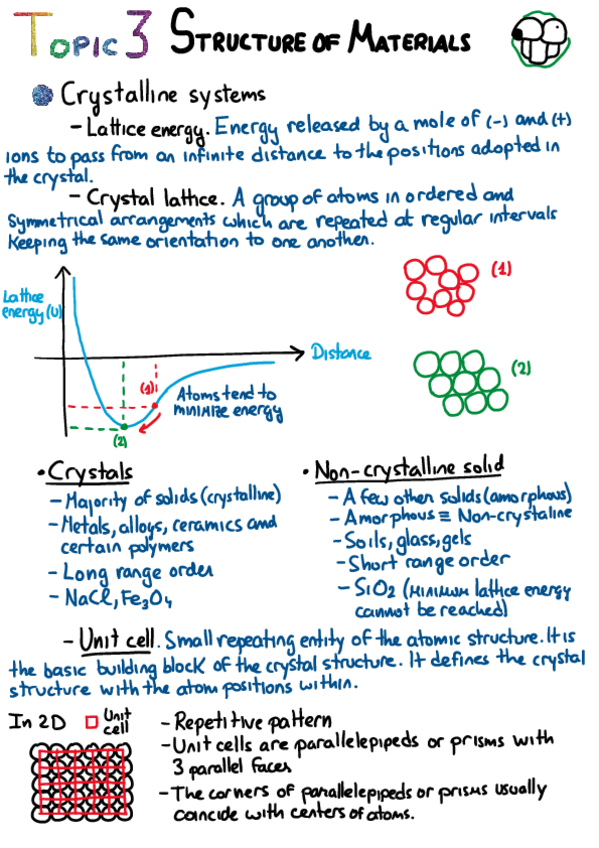 Topic 3 Structure of Materials
Crystalline systems
- Lattice energy. Energy released by a mole of (-) and (+)
ions to pass from an infinite distance to the positions adopted in
the crystal.
- Crystal lattice. A group of atoms in ordered and
symmetrical arrangements which are repeated at regular intervals
keeping the same orientation to one another.
Lattice
energy (U)
Distance
(1)
(2)
Atoms tend to
minimize energy
(1)
(2)
• Crystals
- Majority of solids (crystalline)
- Metals, alloys, ceramics and
certain polymers
- Long range order
- NaCl, Fe3O4
• Non-crystalline solid
- A few other solids (amorphous)
- Amorphous ≡ Non-crystaline
- Soils, glass, gels
- Short range order
- SiO2 (minimum lattice energy
cannot be reached)
- Unit cell. Small repeating entity of the atomic structure. It is
the basic building block of the crystal structure. It defines the crystal
structure with the atom positions within.
In 2D
Unit
cell
- Repetitive pattern
- Unit cells are parallelepipeds or prisms with
3 parallel faces
- The corners of parallelepipeds or prisms usually
coincide with centers of atoms.